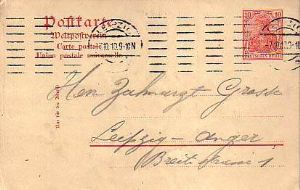 Postkarte
Weltpostverein
Carte postale
Union postale universelle
10 10
9-10N
Herr Zahnarzt Grosse
Leipzig-Anger
(Breite Strasse 1